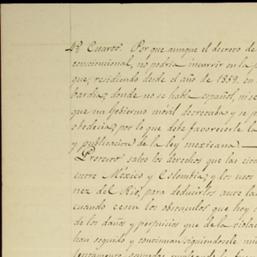 4º Cuarto. Por que aunque el decreto de
convencional, no podria incurrir en la p
que, residiendo desde el año de 1859. en
donde no se habla español, ni se
que un Gobierno moral derrocaba y se p
obedecia; por lo que debe favorecerle la
y publicacion de la ley mexicana
salvo los derechos que las circ
entre México y Colombia; y los
nez del Rio, para deducirlos ante las
cuando cesen los obstaculos que hoy
de los daños y perjuicios que de la viola
han seguido y continuan siguiendosele